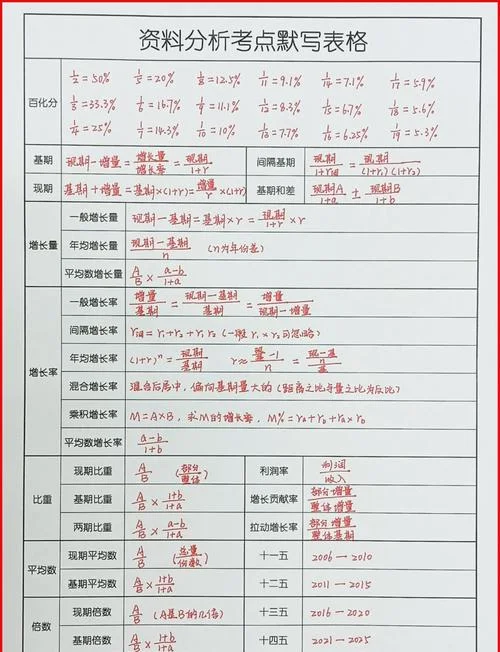 资料分析考点默写表格
百化分
1/2=50% 1/5=20% 1/8=12.5% 1/11=9.1% 1/14=7.1% 1/17=5.9%
1/3=33.3% 1/6=16.7% 1/9=11.1% 1/12=8.3% 1/15=6.7% 1/18=5.6%
1/4=25% 1/7=14.3% 1/10=10% 1/13=7.7% 1/16=6.25% 1/19=5.3%
基期 现期-增量=增长量/增长率=现期/1+r 间隔基期 现期/1+r间=现期/(1+r₁)(1+r₂)
现期 基期+增量=基期×(1+r)=增量/r×(1+r) 基期和差 现期A/1+a ± 现期B/1+b
增长量
一般增长量 现期-基期=基期×r=现期/1+r×r
年均增长量 现期-基期/n (n为年份差)
平均数增长量 A/B×a-b/1+a
增长率
一般增长率 增量/基期=现期-基期/基期=增量/现期-增量
间隔增长率 r间=r₁+r₂+r₁r₂ (一般r₁×r₂可忽略)
年均增长率 (1+r)ⁿ=现期/基期 r≈现/基-1/n=现-基/基/n
混合增长率 混合后居中，偏向基期量大的(距离之比与量之比为反比)
乘积增长率 M=A×B，求M的增长率，M%=rA+rB+rA×rB
平均数增长率 a-b/1+b
比重
现期比重 A/B (部分/整体) 利润率 利润/收入
基期比重 A/B×1+b/1+a 增长贡献率 部分增量/整体增量
两期比重 A/B×a-b/1+a 拉动增长率 部分增量/整体基期
平均数
现期平均数 A/B (总量/份数) 十一五 2006—2010
基期平均数 A/B×1+b/1+a 十二五 2011—2015
倍数
现期倍数 A/B (A是B的几倍) 十三五 2016—2020
基期倍数 A/B×1+b/1+a 十四五 2021—2025